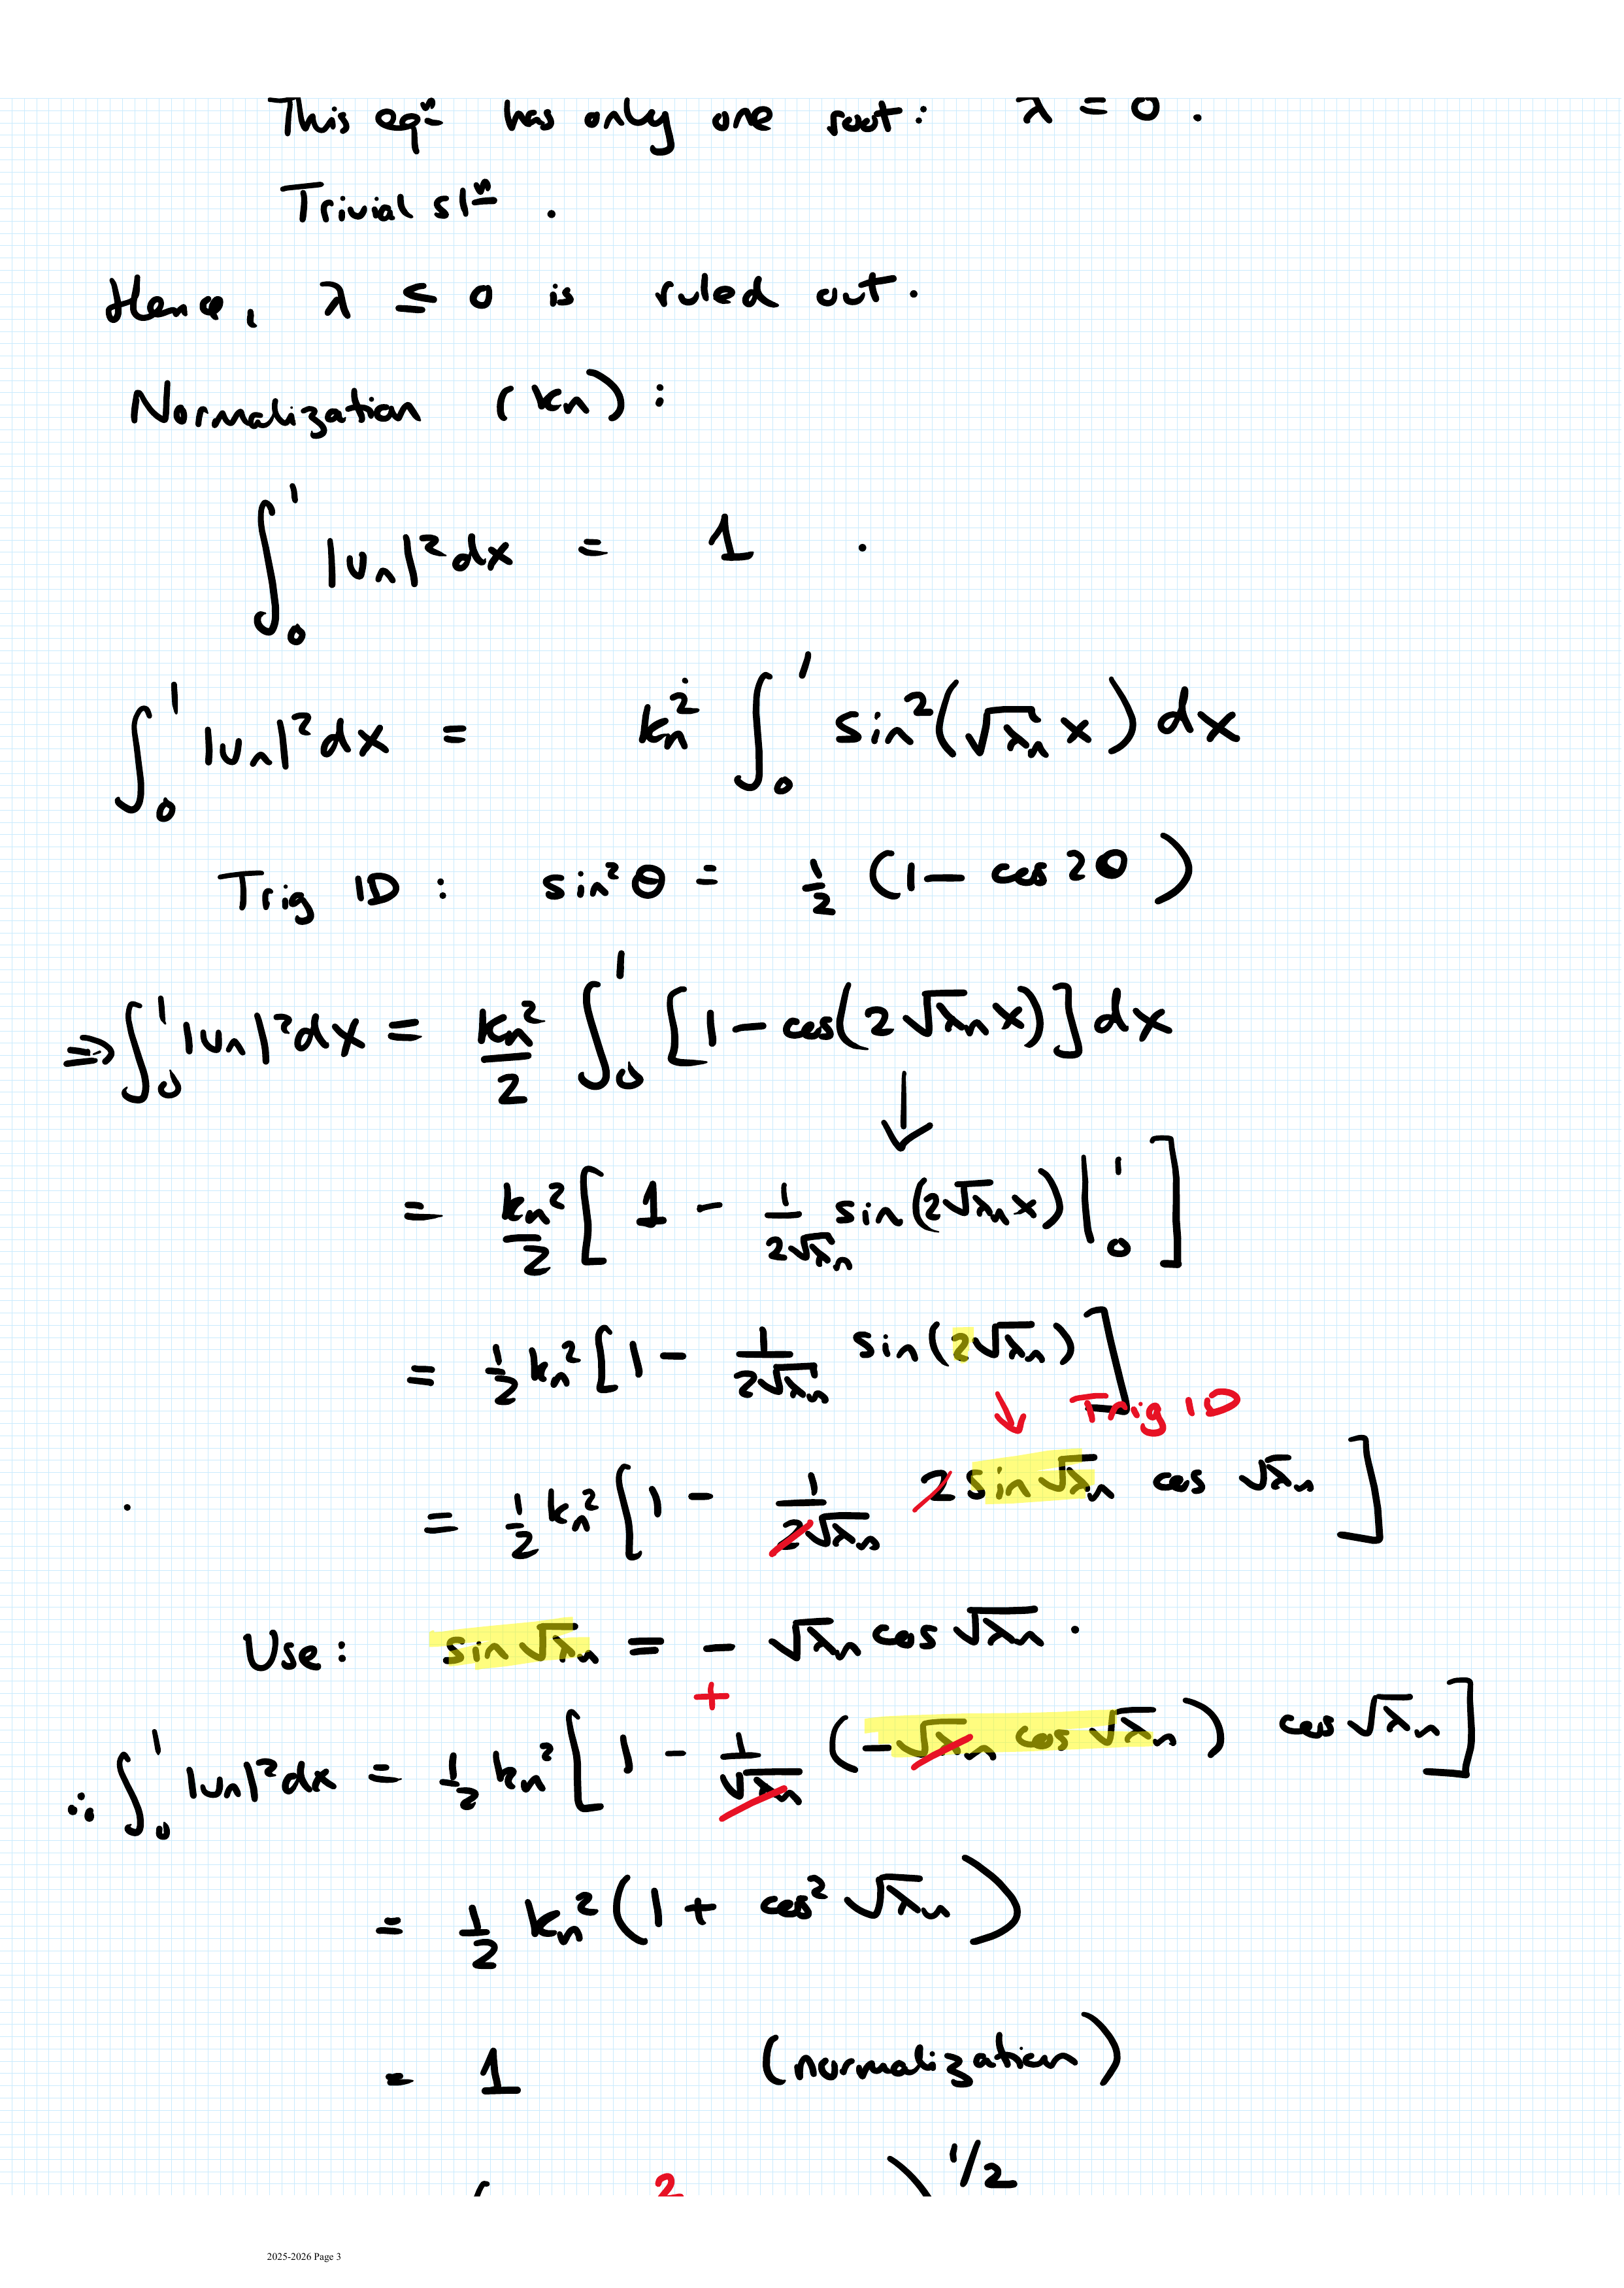 This eqⁿ has only one root: λ = 0 .
Trivial slⁿ .
Hence, λ ≤ 0 is ruled out.
Normalization (kₙ) :
∫₀¹ |uₙ|² dx = 1 .
∫₀¹ |uₙ|² dx = kₙ² ∫₀¹ sin²(√λₙ x) dx
Trig ID : sin²θ = 1/2 (1 − cos 2θ)
⇒ ∫₀¹ |uₙ|² dx = kₙ²/2 ∫₀¹ [1 − cos(2√λₙ x)] dx
↓
= kₙ²/2 [ 1 − 1/(2√λₙ) sin(2√λₙ x) |₀¹ ]
= 1/2 kₙ² [1 − 1/(2√λₙ) sin(2√λₙ)]
↓ Trig ID
= 1/2 kₙ² [1 − 1/(2√λₙ) 2 sin √λₙ cos √λₙ ]
Use : sin √λₙ = − √λₙ cos √λₙ .
+
∴ ∫₀¹ |uₙ|² dx = 1/2 kₙ² [ 1 − 1/√λₙ (−√λₙ cos √λₙ) cos √λₙ ]
= 1/2 kₙ² (1 + cos² √λₙ)
= 1 (normalization)
2 ) 1/2
2025-2026 Page 3